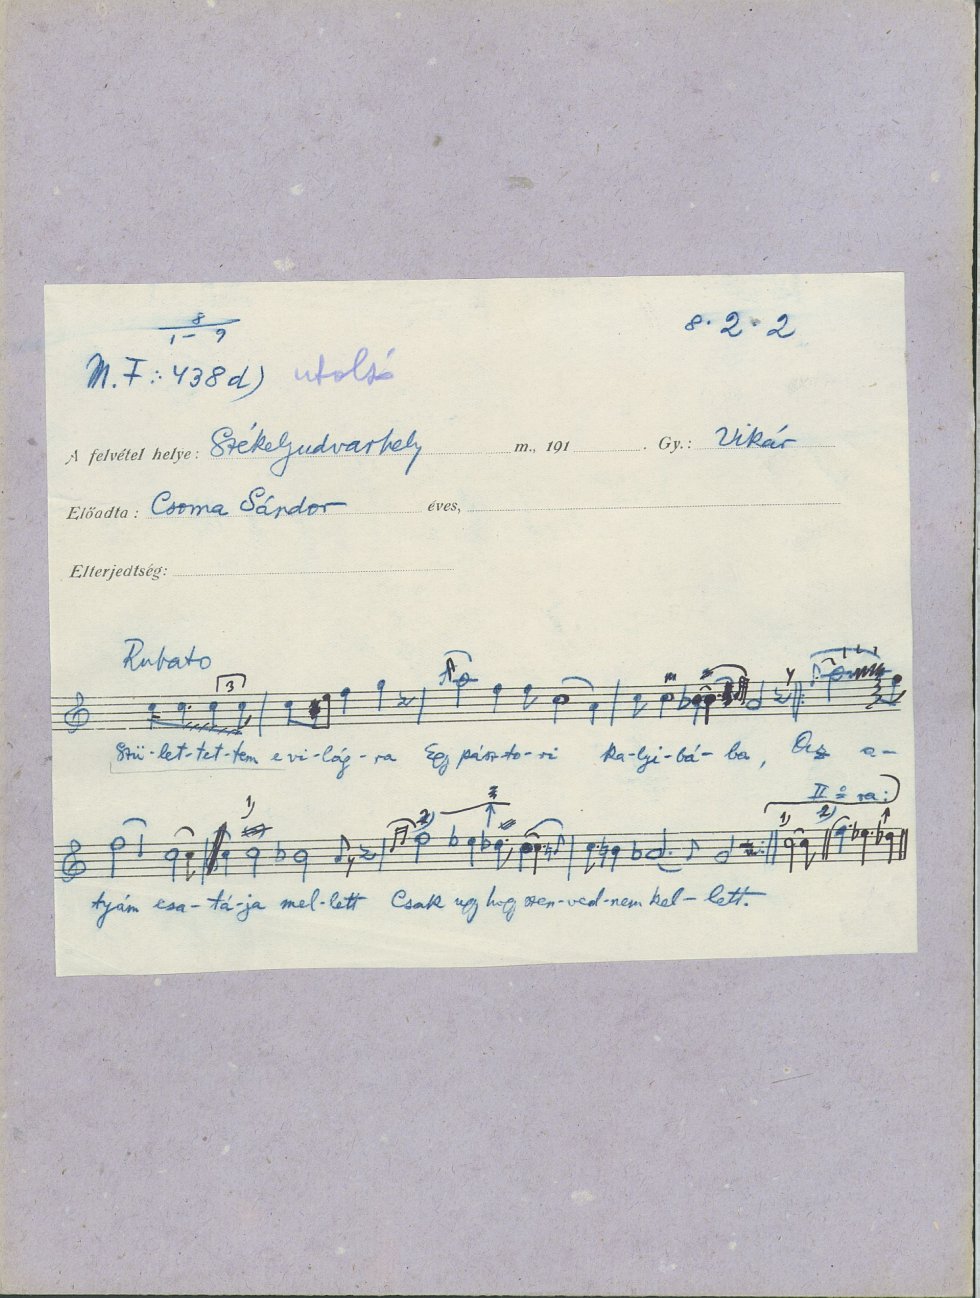 8
1 - 9
8·2·2
M.F.: 438d) utolsó
A felvétel helye: Székelyudvarhely m., 191 . Gy.: Vikár
Előadta: Csoma Sándor éves,
Elterjedtség:
Rubato
3
Szü-let-tet-tem e vi-lág-ra Egy pász-to-ri ka-lyi-bá-ba, Az a-
II = ra:
1) 2) 1) 2)
tyám csa-tá-ja mel-lett Csak ugy hogy szen-ved-nem kel-lett.